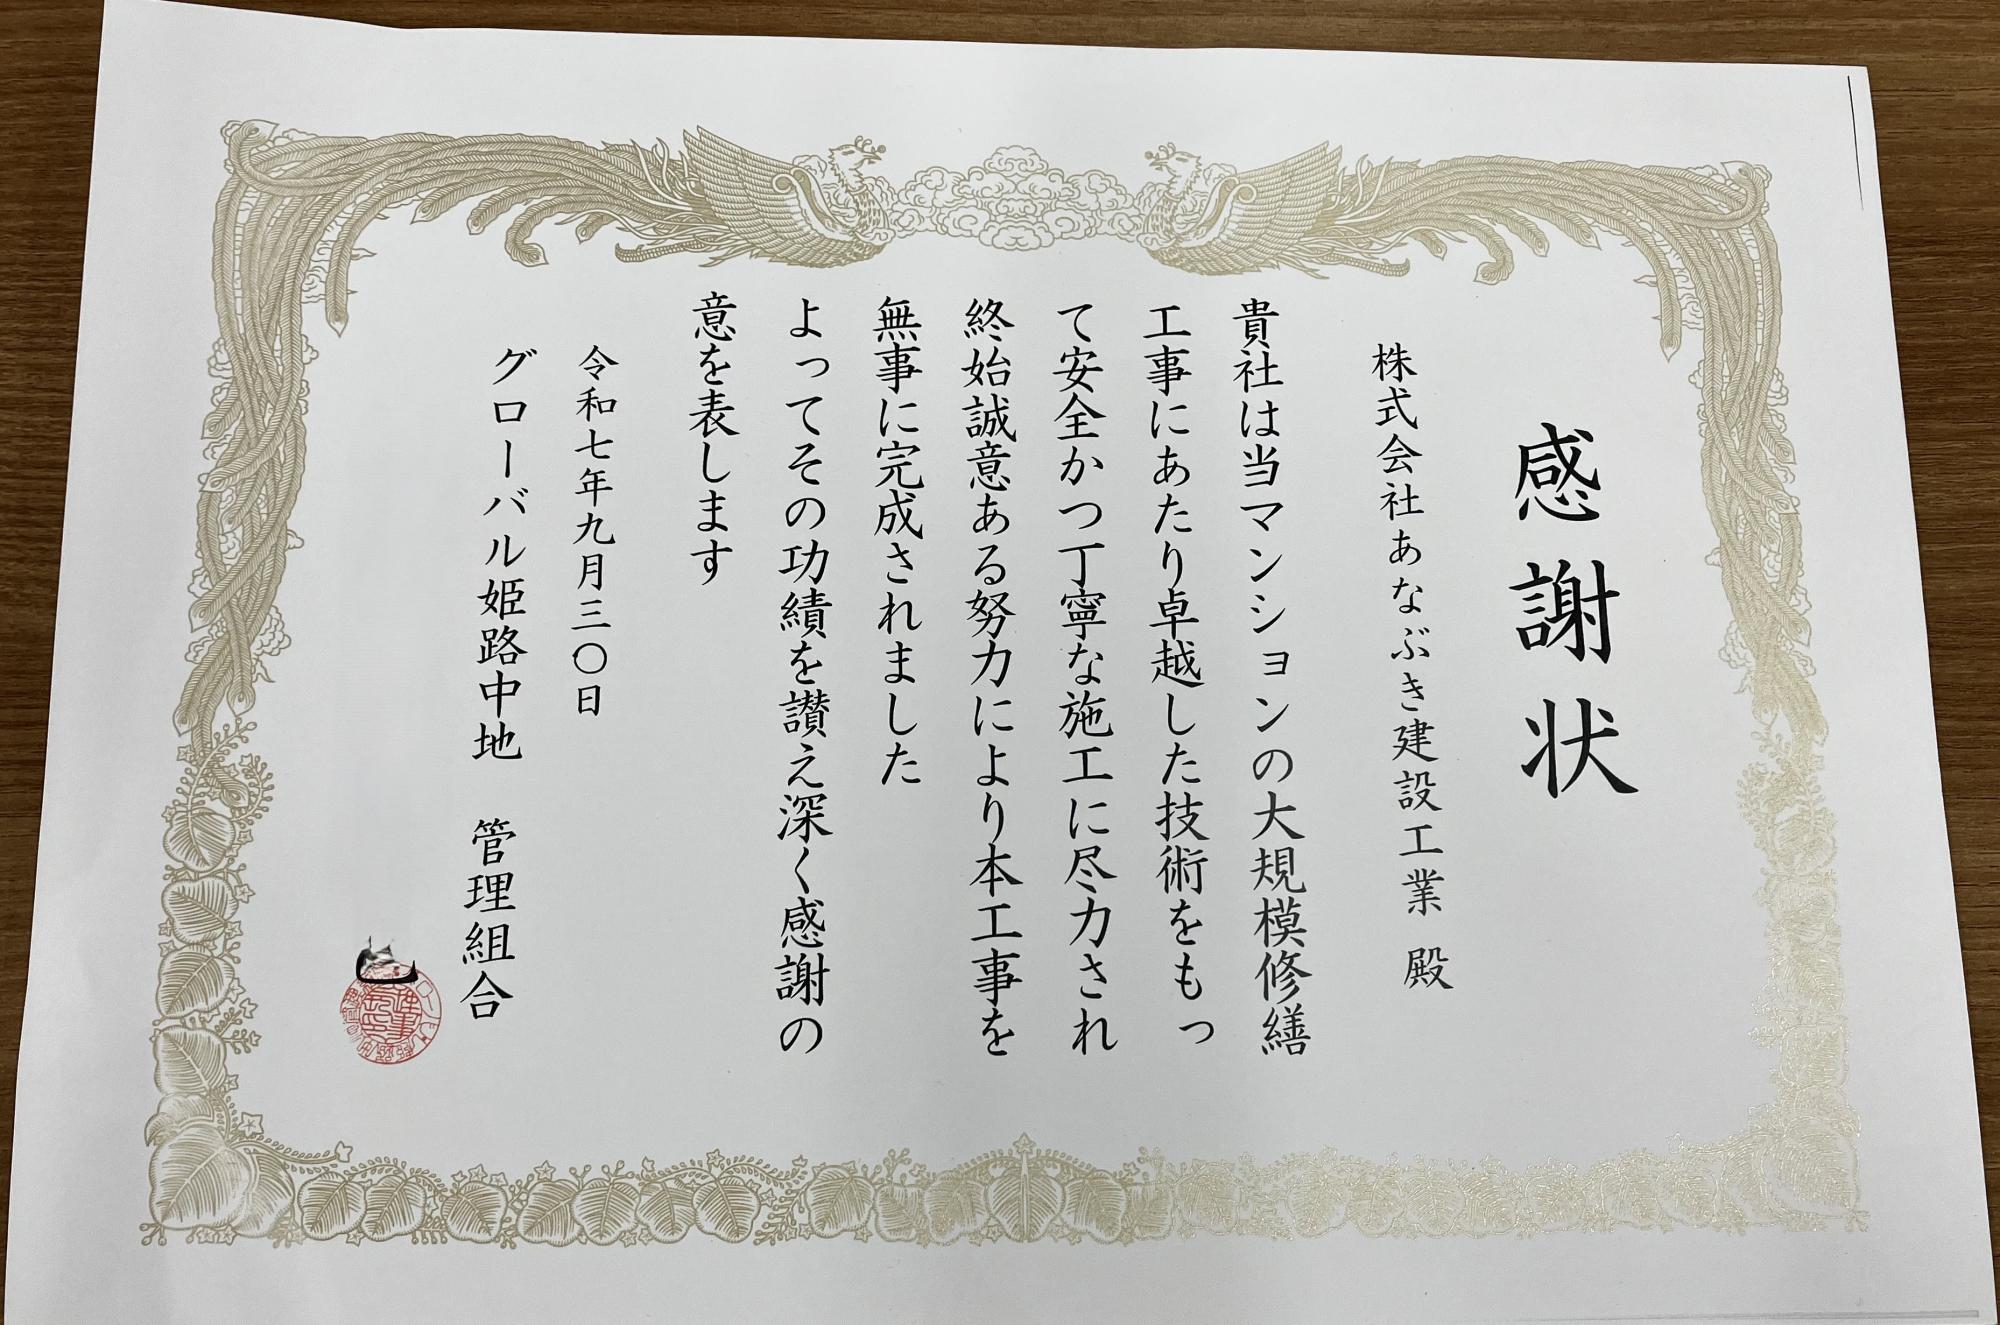 感謝状
株式会社あなぶき建設工業 殿
貴社は当マンションの大規模修繕
工事にあたり卓越した技術をもっ
て安全かつ丁寧な施工に尽力され
終始誠意ある努力により本工事を
無事に完成されました
よってその功績を讃え深く感謝の
意を表します
令和七年九月三〇日
グローバル姫路中地 管理組合